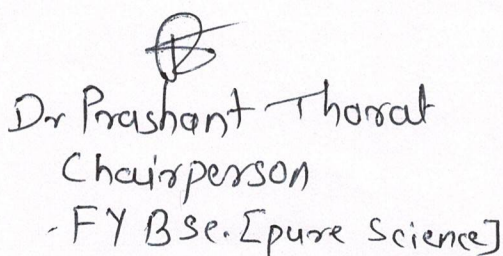 Dr Prashant Thorat
Chairperson
- FY BSc. [pure Science]